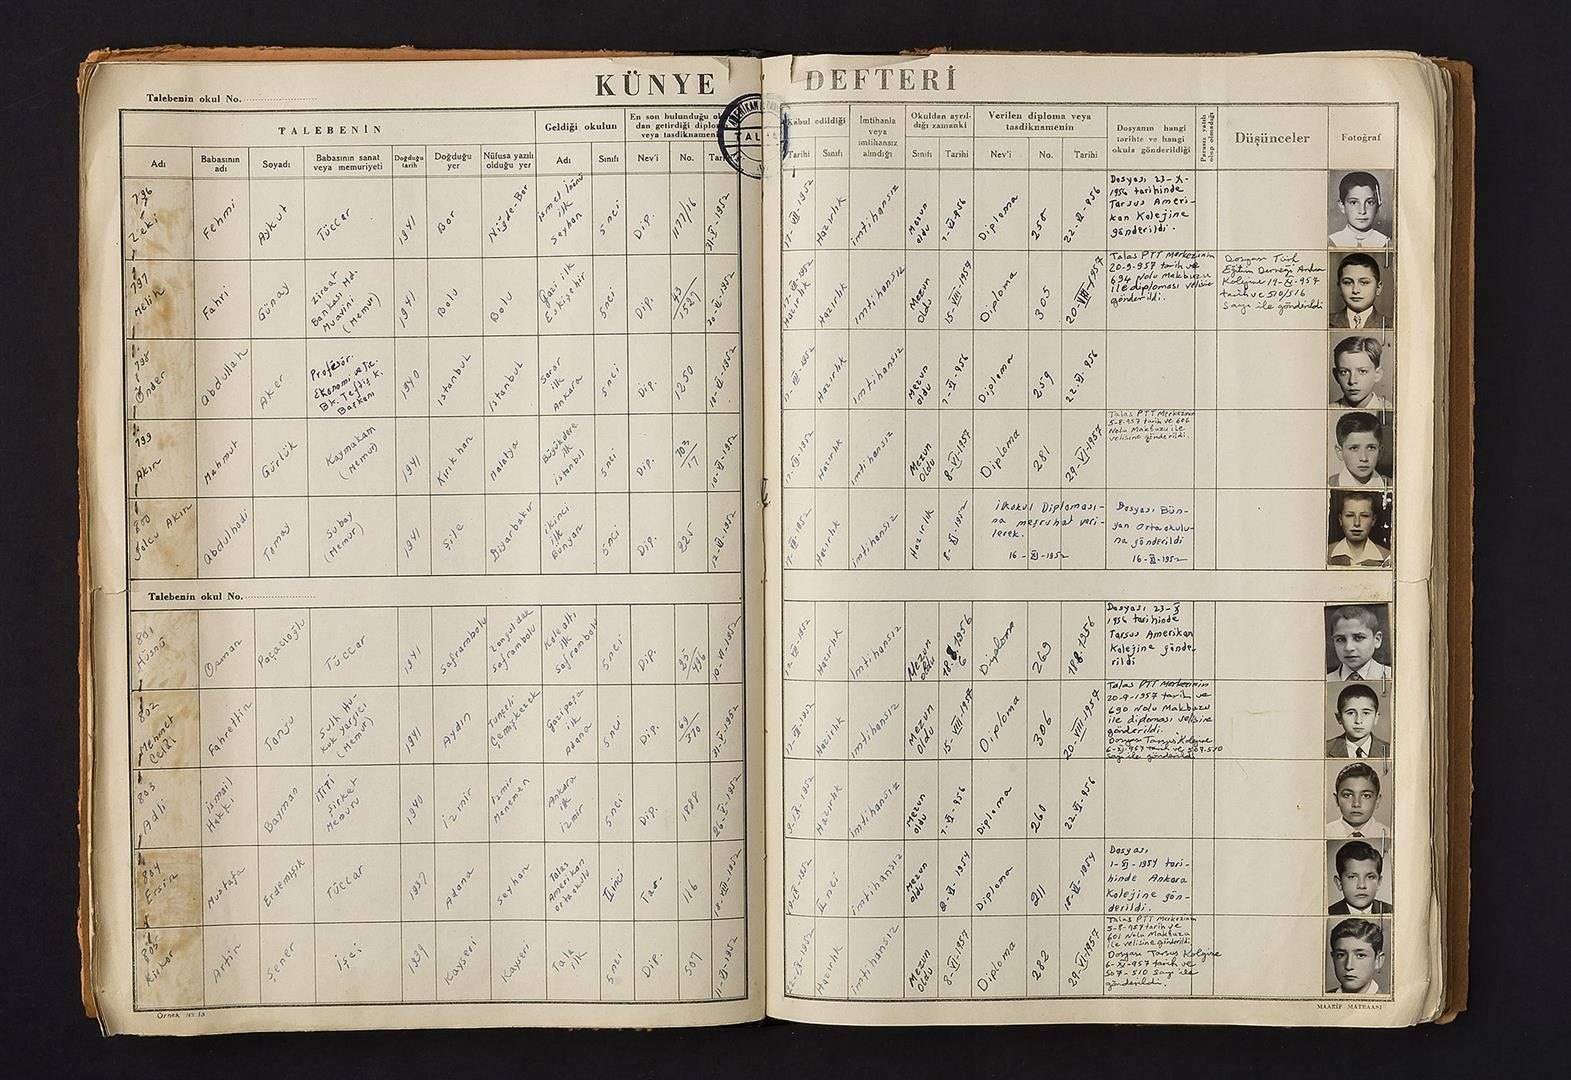 KÜNYE DEFTERİ
Talebenin okul No.
TALEBENİN
Geldiği okulun
En son bulunduğu okuldan getirdiği diploma veya tasdiknamenin
Kabul edildiği
İmtihanla veya imtihansız alındığı
Okuldan ayrıldığı zamanki
Verilen diploma veya tasdiknamenin
Dosyanın hangi tarihte ve hangi okula gönderildiği
Düşünceler
Fotoğraf
Adı
Babasının adı
Soyadı
Babasının sanat veya memuriyeti
Doğduğu tarih
Doğduğu yer
Nüfusa yazılı olduğu yer
Adı
Sınıfı
Nev'i
No.
Tarihi
Tarihi
Sınıfı
Sınıfı
Tarihi
Nev'i
No.
Tarihi
796 Zeki
Fehmi
Aykut
Tüccar
1941
Bor
Niğde-Bor
İsmet İnönü ilk Seyhan
5nci
Dip.
1177/16
31-V-1952
Hazırlık
imtihansız
Mezun oldu
Diploma
258
22-VI-956
Dosyası 23-X-1956 tarihinde Tarsus Amerikan Kolejine gönderildi.
797 Melih
Fahri
Günay
Ziraat Bankası Md. Muavini (Memur)
1941
Bolu
Bolu
Gazi ilk Eskişehir
5nci
Dip.
Hazırlık
imtihansız
Mezun Oldu
15-VIII-1957
Diploma
305
20-VIII-1957
Talas PTT Merkezinin 20-9-957 tarih ve 694 Nolu Makbuzu ile diploması velisine gönderildi.
Dosyası Türk Eğitim Derneği Ankara Kolejine 19-XI-957 tarih ve 510/516 Sayı ile gönderildi
798 Önder
Abdullah
Aker
Profösör. Ekonomi ve Tic. Bk. Teftiş K. Başkanı
1940
istanbul
istanbul
Sarar ilk Ankara
5nci
Dip.
1250
Hazırlık
imtihansız
Mezun oldu
Diploma
259
22-VI-956
799 Akın
Mahmut
Gürlük
Kaymakam (Memur)
1941
Kırıkhan
Malatya
Büyükdere ilk istanbul
5nci
Dip.
703/17
Hazırlık
imtihansız
Mezun Oldu
8-VI-1957
Diploma
281
29-VI-1957
Talas PTT Merkezinin 5-8-957 tarih ve 606 Nolu Makbuzu ile velisine gönderildi.
800 Yolcu Akın
Abdulhadi
Tomay
Subay (Memur)
1941
Şile
Diyarbakır
ikinci ilk Bünyan
5nci
Dip.
225
Hazırlık
imtihansız
Hazırlık
8-XI-1952
ilkokul Diplomasına meşruhat verilerek. 16-XI-1952
Dosyası Bünyan Ortaokuluna gönderildi 16-XI-1952
Talebenin okul No.
801 Hüsnü
Osman
Paçacıoğlu
Tüccar
1941
Safranbolu
Zonguldak Safranbolu
Kolealtı ilk Safranbolu
5nci
Dip.
Hazırlık
imtihansız
Mezun oldu
Diploma
269
18.8.1956
Dosyası 23-X 1956 tarihinde Tarsus Amerikan Kolejine gönderildi
802 Mehmet Celil
Fahrettin
Tonju
Sulh Hukuk yargıcı (Memur)
1941
Aydın
Tunceli Çemişkezek
Gazipaşa ilk Adana
5nci
Dip.
69/370
Hazırlık
imtihansız
Mezun Oldu
15-VIII-1957
Diploma
306
20-VIII-1957
Talas PTT Merkezinin 20-9-1957 tarih ve 690 Nolu Makbuzu ile diploması velisine gönderildi. Dosyası Tarsus Kolejine 6-XI-957 tarih ve 507-510 sayı ile gönderildi
803 Adli
İsmail Hakkı
Bayman
Şirket Memuru
1940
izmir
izmir Menemen
Ankara ilk izmir
5nci
Dip.
1888
26-V-1952
Hazırlık
imtihansız
Mezun oldu
Diploma
260
22-VI-956
804 Ersin
Mustafa
Erdemışık
Tüccar
1937
Adana
Seyhan
Talas Amerikan ortaokulu
IIinci
Tas-
116
IInci
imtihansız
Mezun oldu
8-VI-1954
Diploma
211
18-VI-1954
Dosyası 1-XI-1954 tarihinde Ankara Kolejine gönderildi.
805
Artin
Şener
işçi
1939
Kayseri
Kayseri
Talas ilk
5nci
Dip.
507
11-VI-1952
Hazırlık
imtihansız
Mezun Oldu
8-VI-1957
Diploma
282
29-VI-1957
Talas PTT Merkezinin 5-8-957 tarih ve 601 Nolu Makbuzu ile velisine gönderildi Dosyası Tarsus Kolejine 6-XI-957 tarih ve 507-510 sayı ile gönderildi.
MAARİF MATBAASI